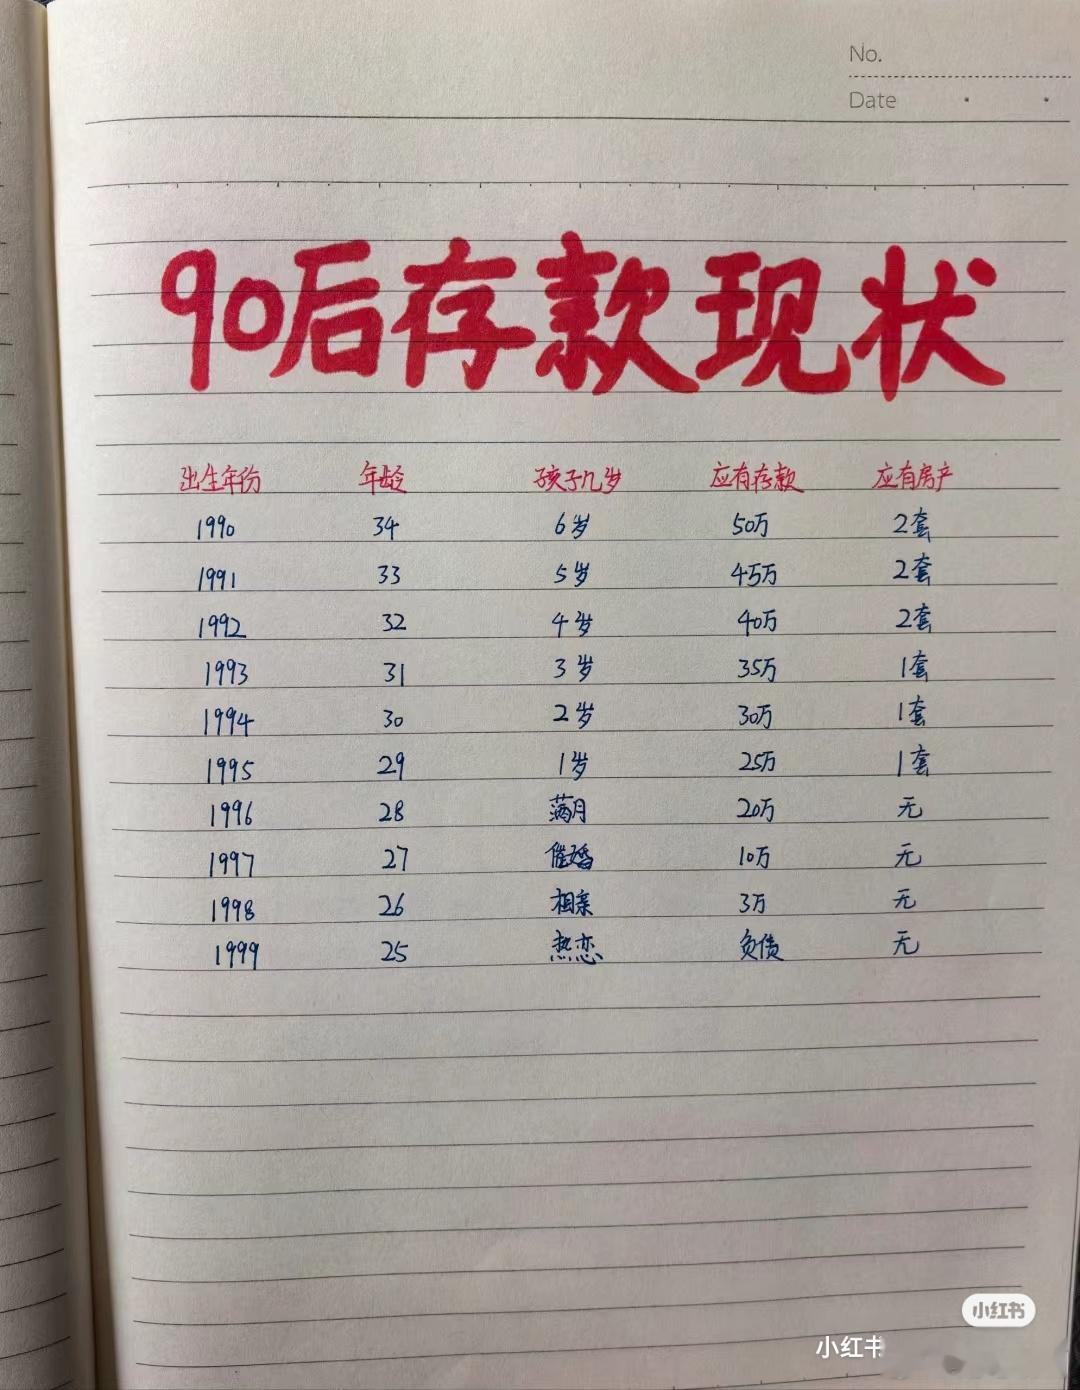 No.
Date
90后存款现状
出生年份 年龄 孩子几岁 应有存款 应有房产
1990 34 6岁 50万 2套
1991 33 5岁 45万 2套
1992 32 4岁 40万 2套
1993 31 3岁 35万 1套
1994 30 2岁 30万 1套
1995 29 1岁 25万 1套
1996 28 满月 20万 无
1997 27 催婚 10万 无
1998 26 相亲 3万 无
1999 25 热恋 负债 无
小红书
小红书